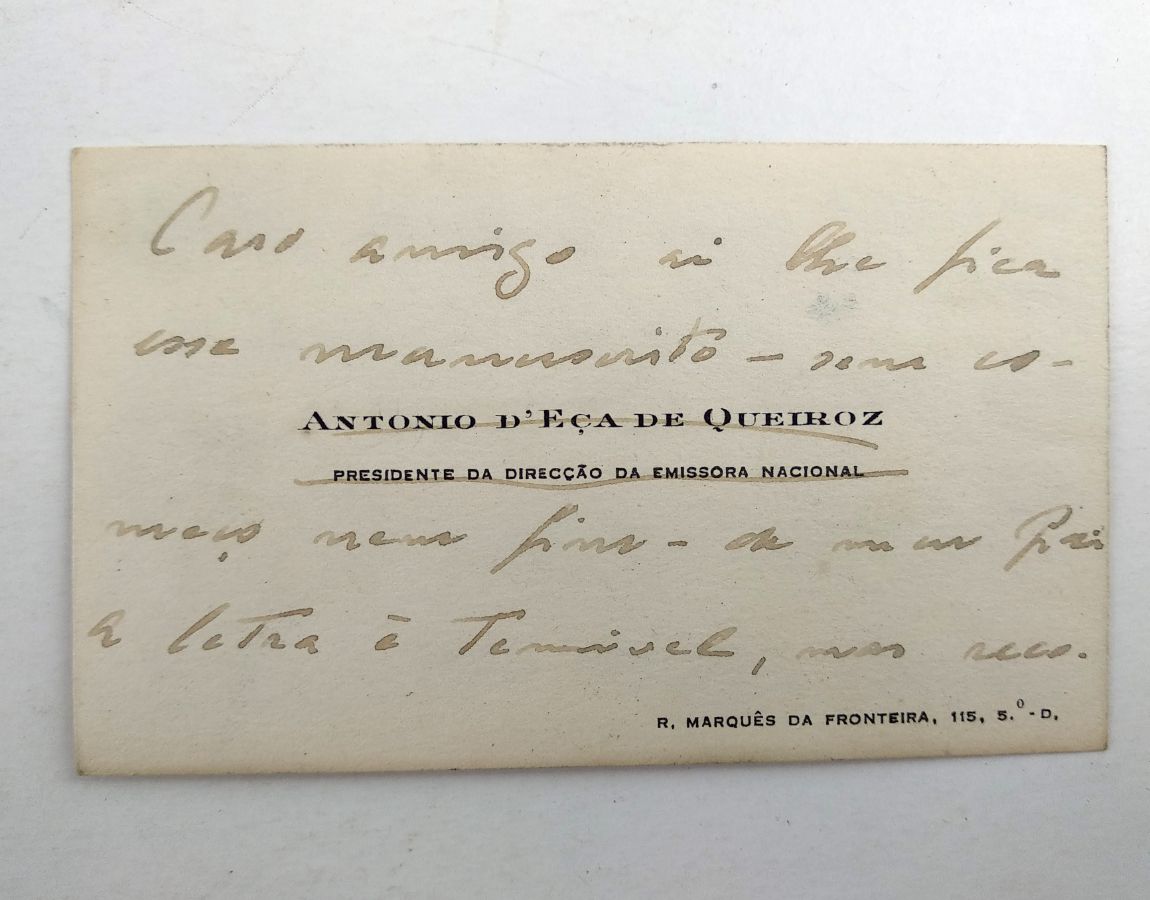 Caro amigo ai lhe fica
esse manuscrito - sem co-
ANTONIO D'EÇA DE QUEIROZ
PRESIDENTE DA DIRECÇÃO DA EMISSORA NACIONAL
meço nem fim - de meu Pai
a letra é temivel, mas reco-
R. MARQUÊS DA FRONTEIRA, 115, 5.º-D.